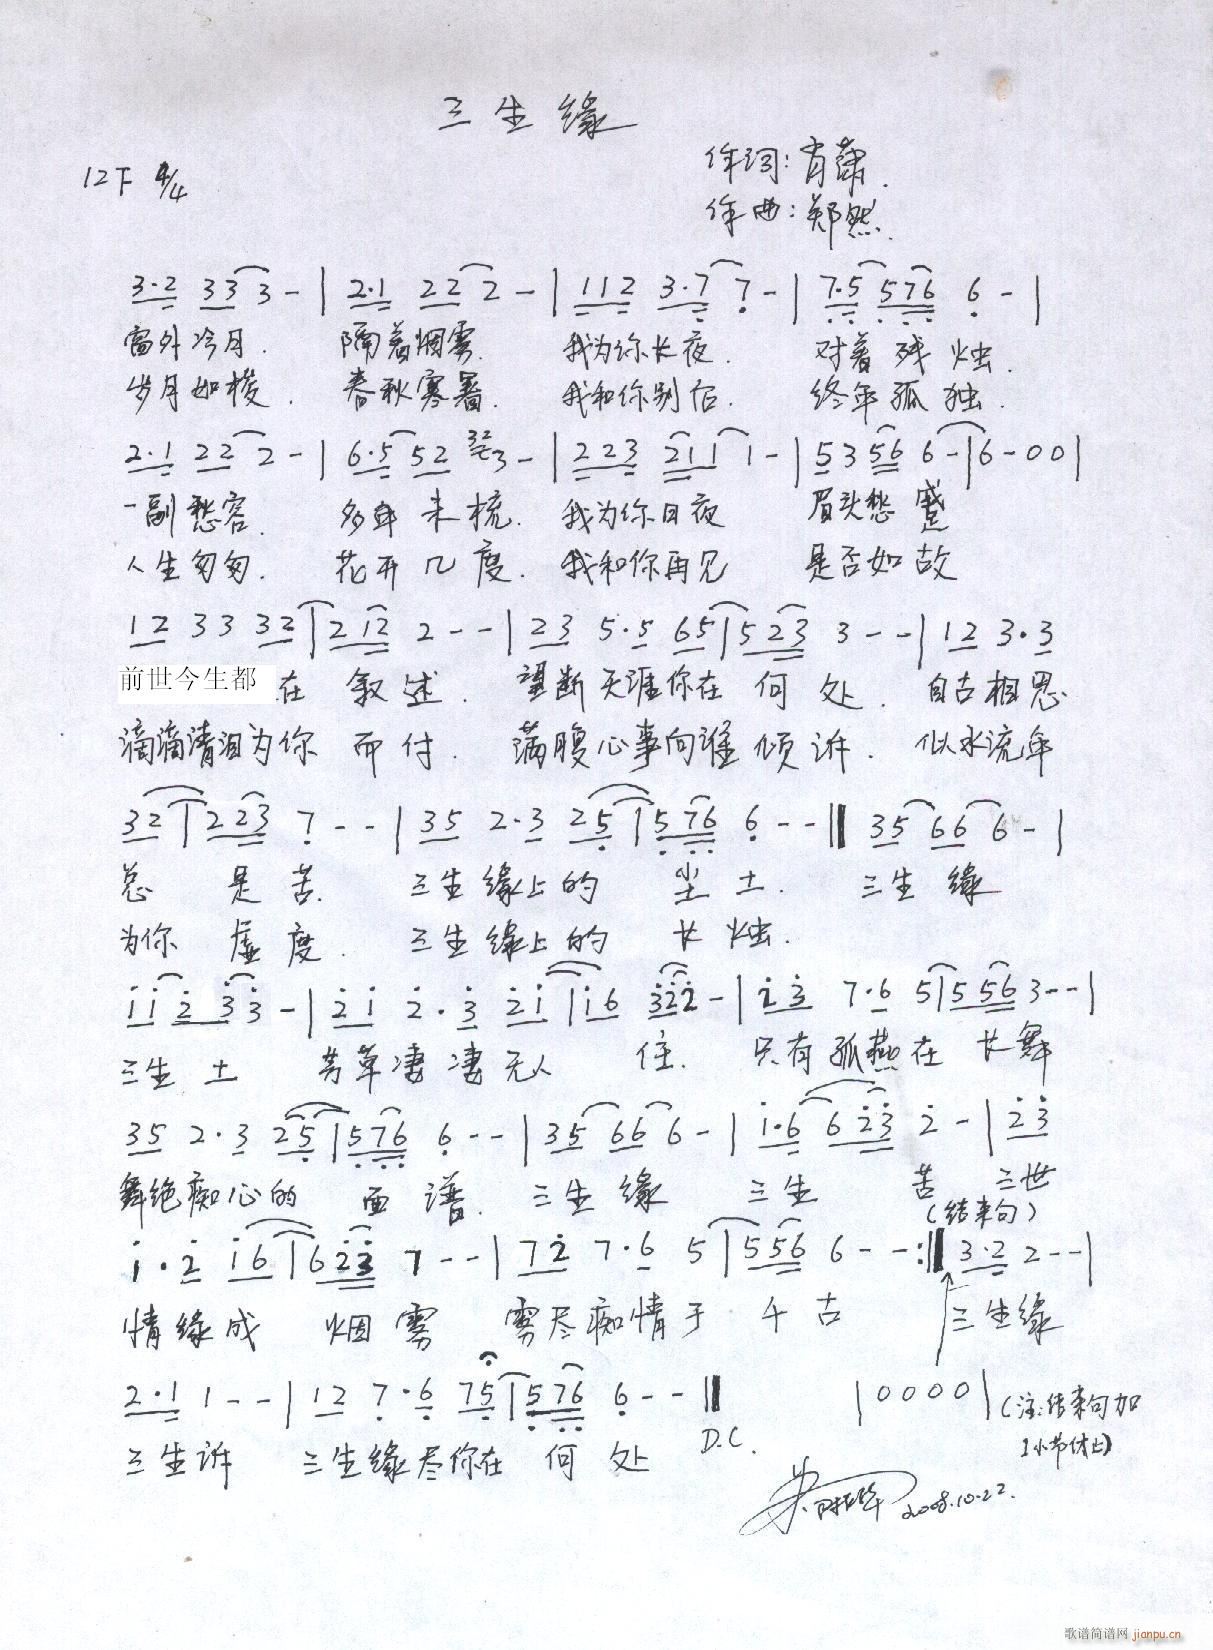 三生缘
作词:肖萧.
12下 4/4
作曲:郑然.
3·2 33 3 - | 2·1 22 2 - | 112 3·7 7 - | 7·5 576 6 - |
窗外冷月. 隔着烟雾. 我为你长夜. 对着残烛.
岁月如梭. 春秋寒暑. 我和你别后. 终年孤独.
2·1 22 2 - | 6·5 52 32 3 - | 223 211 1 - | 5 3 56 6 - | 6 - 0 0 |
一副愁容. 多年未梳. 我为你日夜 眉头愁蹙
人生匆匆. 花开几度. 我和你再见 是否如故
12 3 3 32 | 212 2 - - | 23 5·5 65 | 523 3 - - | 12 3·3
前世今生都在 叙述. 望断天涯你在 何处. 自古相思
滴滴清泪为你 而付. 满腹心事向谁倾诉. 似水流年
32 | 223 7 - - | 35 2·3 25 | 576 6 - - || 35 66 6 - |
总 是苦. 三生缘上的 尘土. 三生缘
为你 虚度. 三生缘上的 长烛.
11 2 3 3 - | 21 2·3 21 | 16 322 - | 23 7·6 5 | 556 3 - - |
三生土 芳草凄凄无人 住. 只有孤燕在 长舞
35 2·3 25 | 576 6 - - | 35 66 6 - | 1·6 623 2 - | 23
舞绝痴心的 面谱. 三生缘 三生 苦 三世
(结束句)
1·2 16 | 623 7 - - | 72 7·6 5 | 556 6 - - :|| 3·2 2 - - |
情缘成 烟雾 雾尽痴情于 千古 三生缘
2·1 1 - - | 12 7·6 75 | 576 6 - - || D.C. | 0 0 0 0 | (注:结束句加
1小节休止)
三生诉 三生缘尽你在 何处
2008.10.22.
歌谱简谱网 jianpu.cn